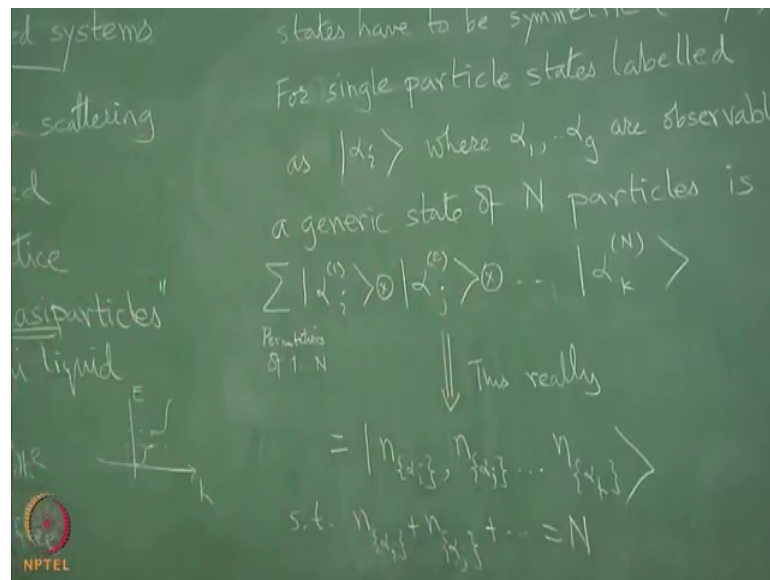 ed systems
scattering
ed
tice
asiparticles"
liquid
E
k
states have to be symmetric
For single particle states labelled
as |α_i⟩ where α_1,..α_g are observabl
a generic state of N particles is
∑ |α_i^(1)⟩⊗|α_j^(2)⟩⊗... |α_k^(N)⟩
Permutations
of 1..N
⇓ This really
= |n_{α_i}, n_{α_j} ... n_{α_k}⟩
s.t. n_{α_i} + n_{α_j} + ... = N
NPTEL